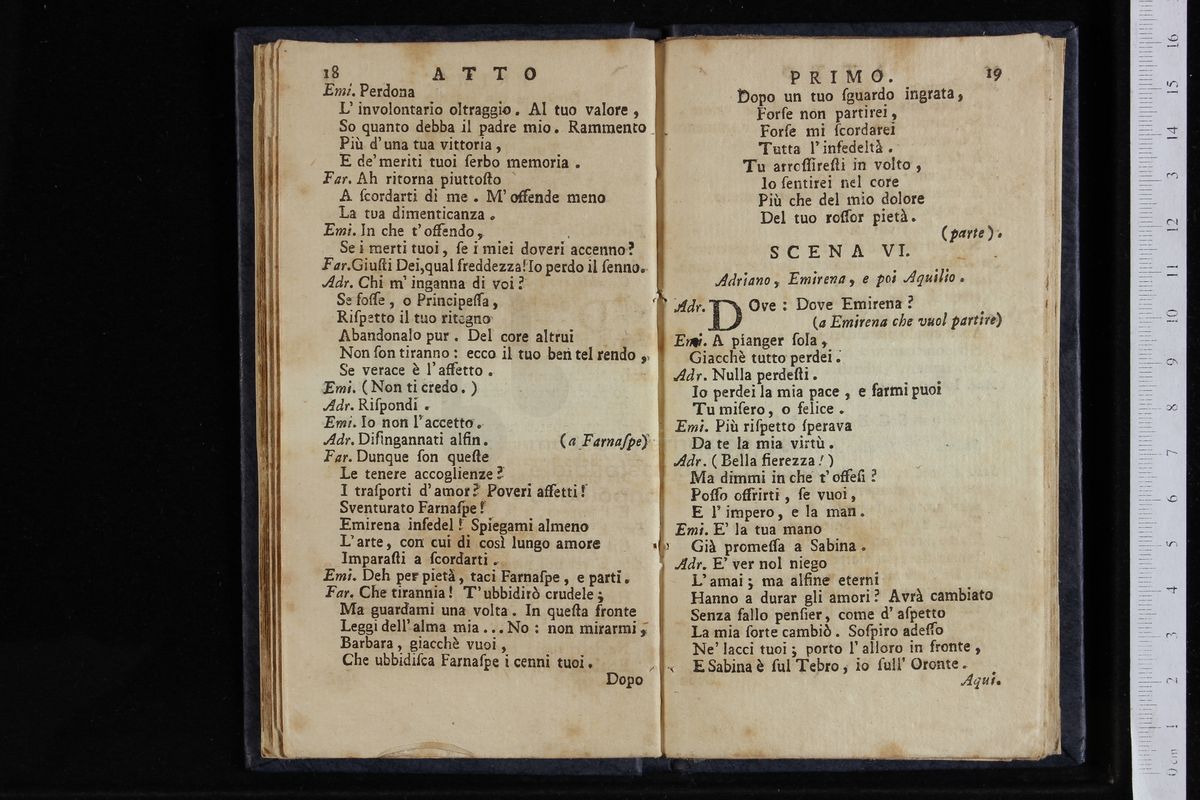 18 ATTO
Emi. Perdona
L' involontario oltraggio. Al tuo valore,
So quanto debba il padre mio. Rammento
Più d'una tua vittoria,
E de' meriti tuoi ſerbo memoria.
Far. Ah ritorna piuttoſto
A ſcordarti di me. M' offende meno
La tua dimenticanza.
Emi. In che t' offendo,
Se i merti tuoi, ſe i miei doveri accenno?
Far. Giuſti Dei, qual freddezza! Io perdo il ſenno.
Adr. Chi m' inganna di voi?
Se foſſe, o Principeſſa,
Riſpetto il tuo ritegno
Abandonalo pur. Del core altrui
Non ſon tiranno: ecco il tuo ben tel rendo,
Se verace è l'affetto.
Emi. (Non ti credo.)
Adr. Riſpondi.
Emi. Io non l'accetto.
Adr. Diſingannati alfin. (a Farnaſpe)
Far. Dunque ſon queſte
Le tenere accoglienze?
I traſporti d'amor? Poveri affetti!
Sventurato Farnaſpe!
Emirena infedel! Spiegami almeno
L'arte, con cui di così lungo amore
Imparaſti a ſcordarti.
Emi. Deh per pietà, taci Farnaſpe, e parti.
Far. Che tirannia! T'ubbidirò crudele;
Ma guardami una volta. In queſta fronte
Leggi dell'alma mia... No: non mirarmi,
Barbara, giacchè vuoi,
Che ubbidiſca Farnaſpe i cenni tuoi.
Dopo
PRIMO. 19
Dopo un tuo ſguardo ingrata,
Forſe non partirei,
Forſe mi ſcordarei
Tutta l'infedeltà.
Tu arroſſireſti in volto,
Io ſentirei nel core
Più che del mio dolore
Del tuo roſſor pietà.
(parte).
SCENA VI.
Adriano, Emirena, e poi Aquilio.
Adr. DOve: Dove Emirena?
(a Emirena che vuol partire)
Emi. A pianger ſola,
Giacchè tutto perdei.
Adr. Nulla perdeſti.
Io perdei la mia pace, e farmi puoi
Tu miſero, o felice.
Emi. Più riſpetto ſperava
Da te la mia virtù.
Adr. (Bella fierezza!)
Ma dimmi in che t'offeſi?
Poſſo offrirti, ſe vuoi,
E l'impero, e la man.
Emi. E' la tua mano
Già promeſſa a Sabina.
Adr. E' ver nol niego
L'amai; ma alfine eterni
Hanno a durar gli amori? Avrà cambiato
Senza fallo penſier, come d'aſpetto
La mia ſorte cambiò. Soſpiro adeſſo
Ne' lacci tuoi; porto l'alloro in fronte,
E Sabina è ſul Tebro, io ſull' Oronte.
Aqui.
0 cm 1 2 3 4 5 6 7 8 9 10 11 12 13 14 15 16